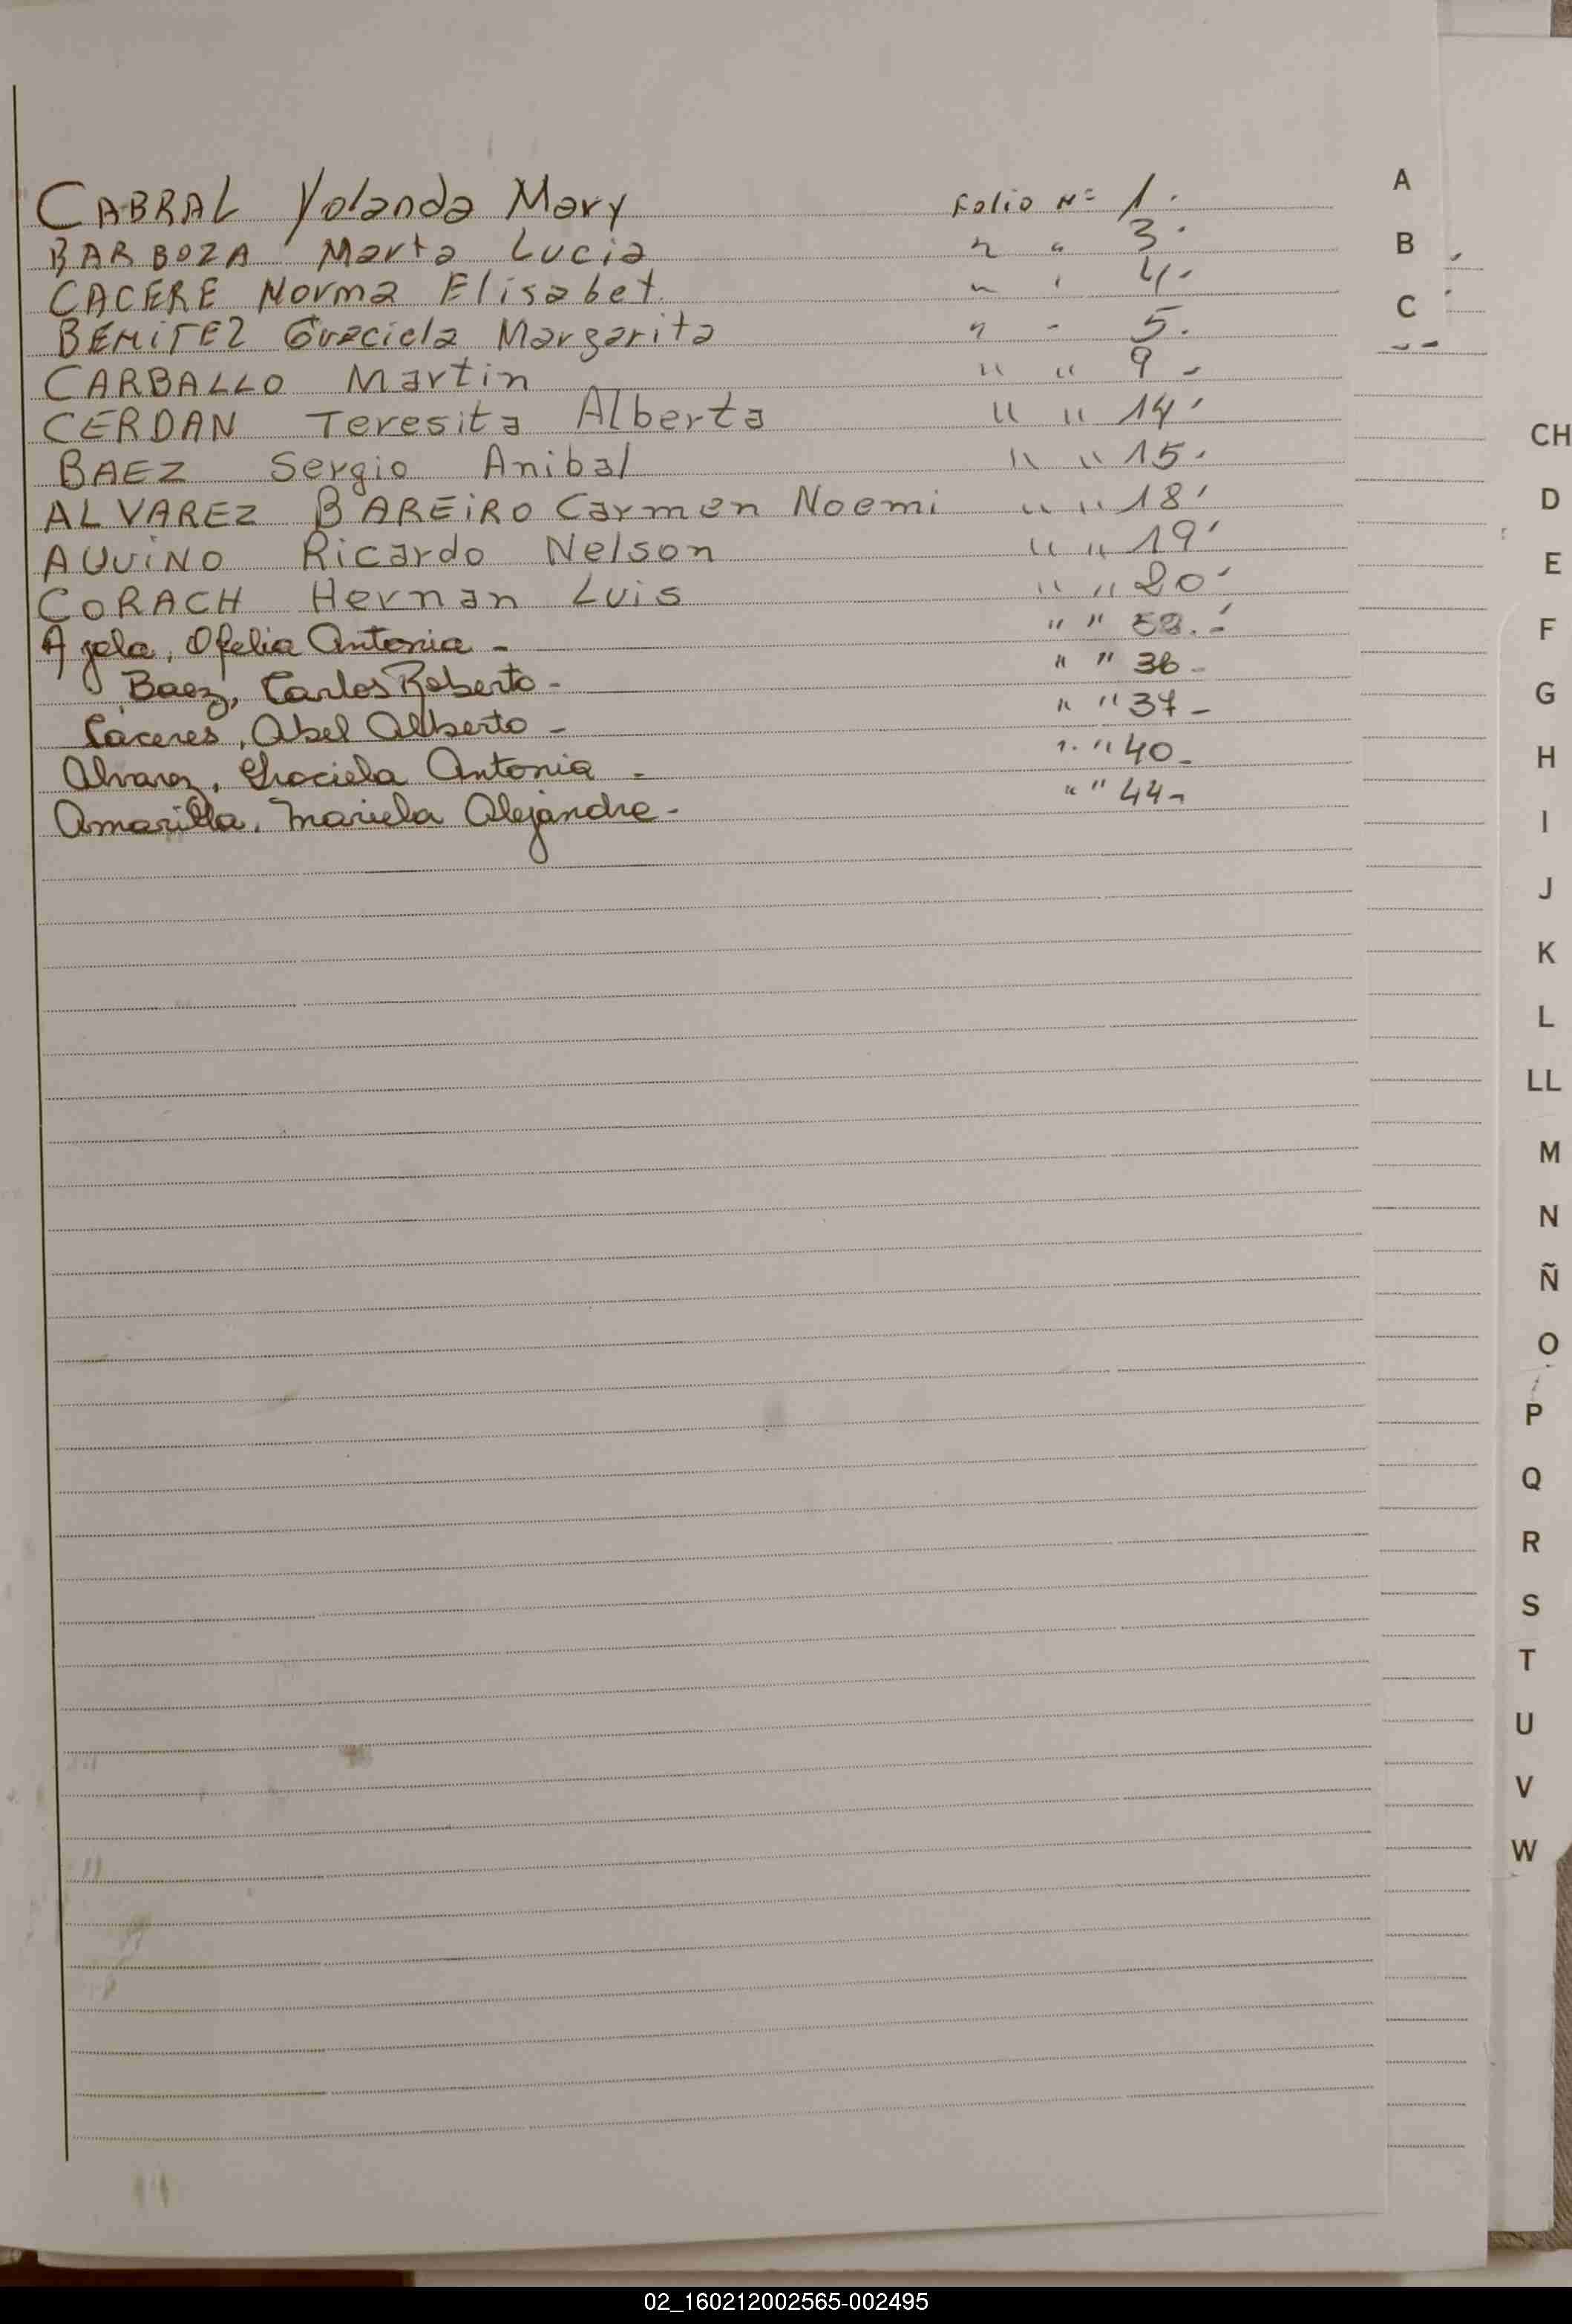 CABRAL Yolanda Mary Folio Nº 1.
BARBOZA Marta Lucia " " 3.
CACERE Norma Elisabet. " " 4.
BENITEZ Graciela Margarita " " 5.
CARBALLO Martin " " 9-
CERDAN Teresita Alberta " " 14.
BAEZ Sergio Anibal " " 15.
ALVAREZ BAREIRO Carmen Noemi " " 18.
AUUINO Ricardo Nelson " " 19.
CORACH Hernan Luis " " 20.
Ayala, Ofelia Antonia - " "
Baez, Carlos Roberto - " " 36-
Cáceres, Abel Alberto - " " 37-
Alvarez, Graciela Antonia - " " 40-
Amarilla, Mariela Alejandra - " " 44-
A
B
C
CH
D
E
F
G
H
I
J
K
L
LL
M
N
Ñ
O
P
Q
R
S
T
U
V
W
02_160212002565-002495